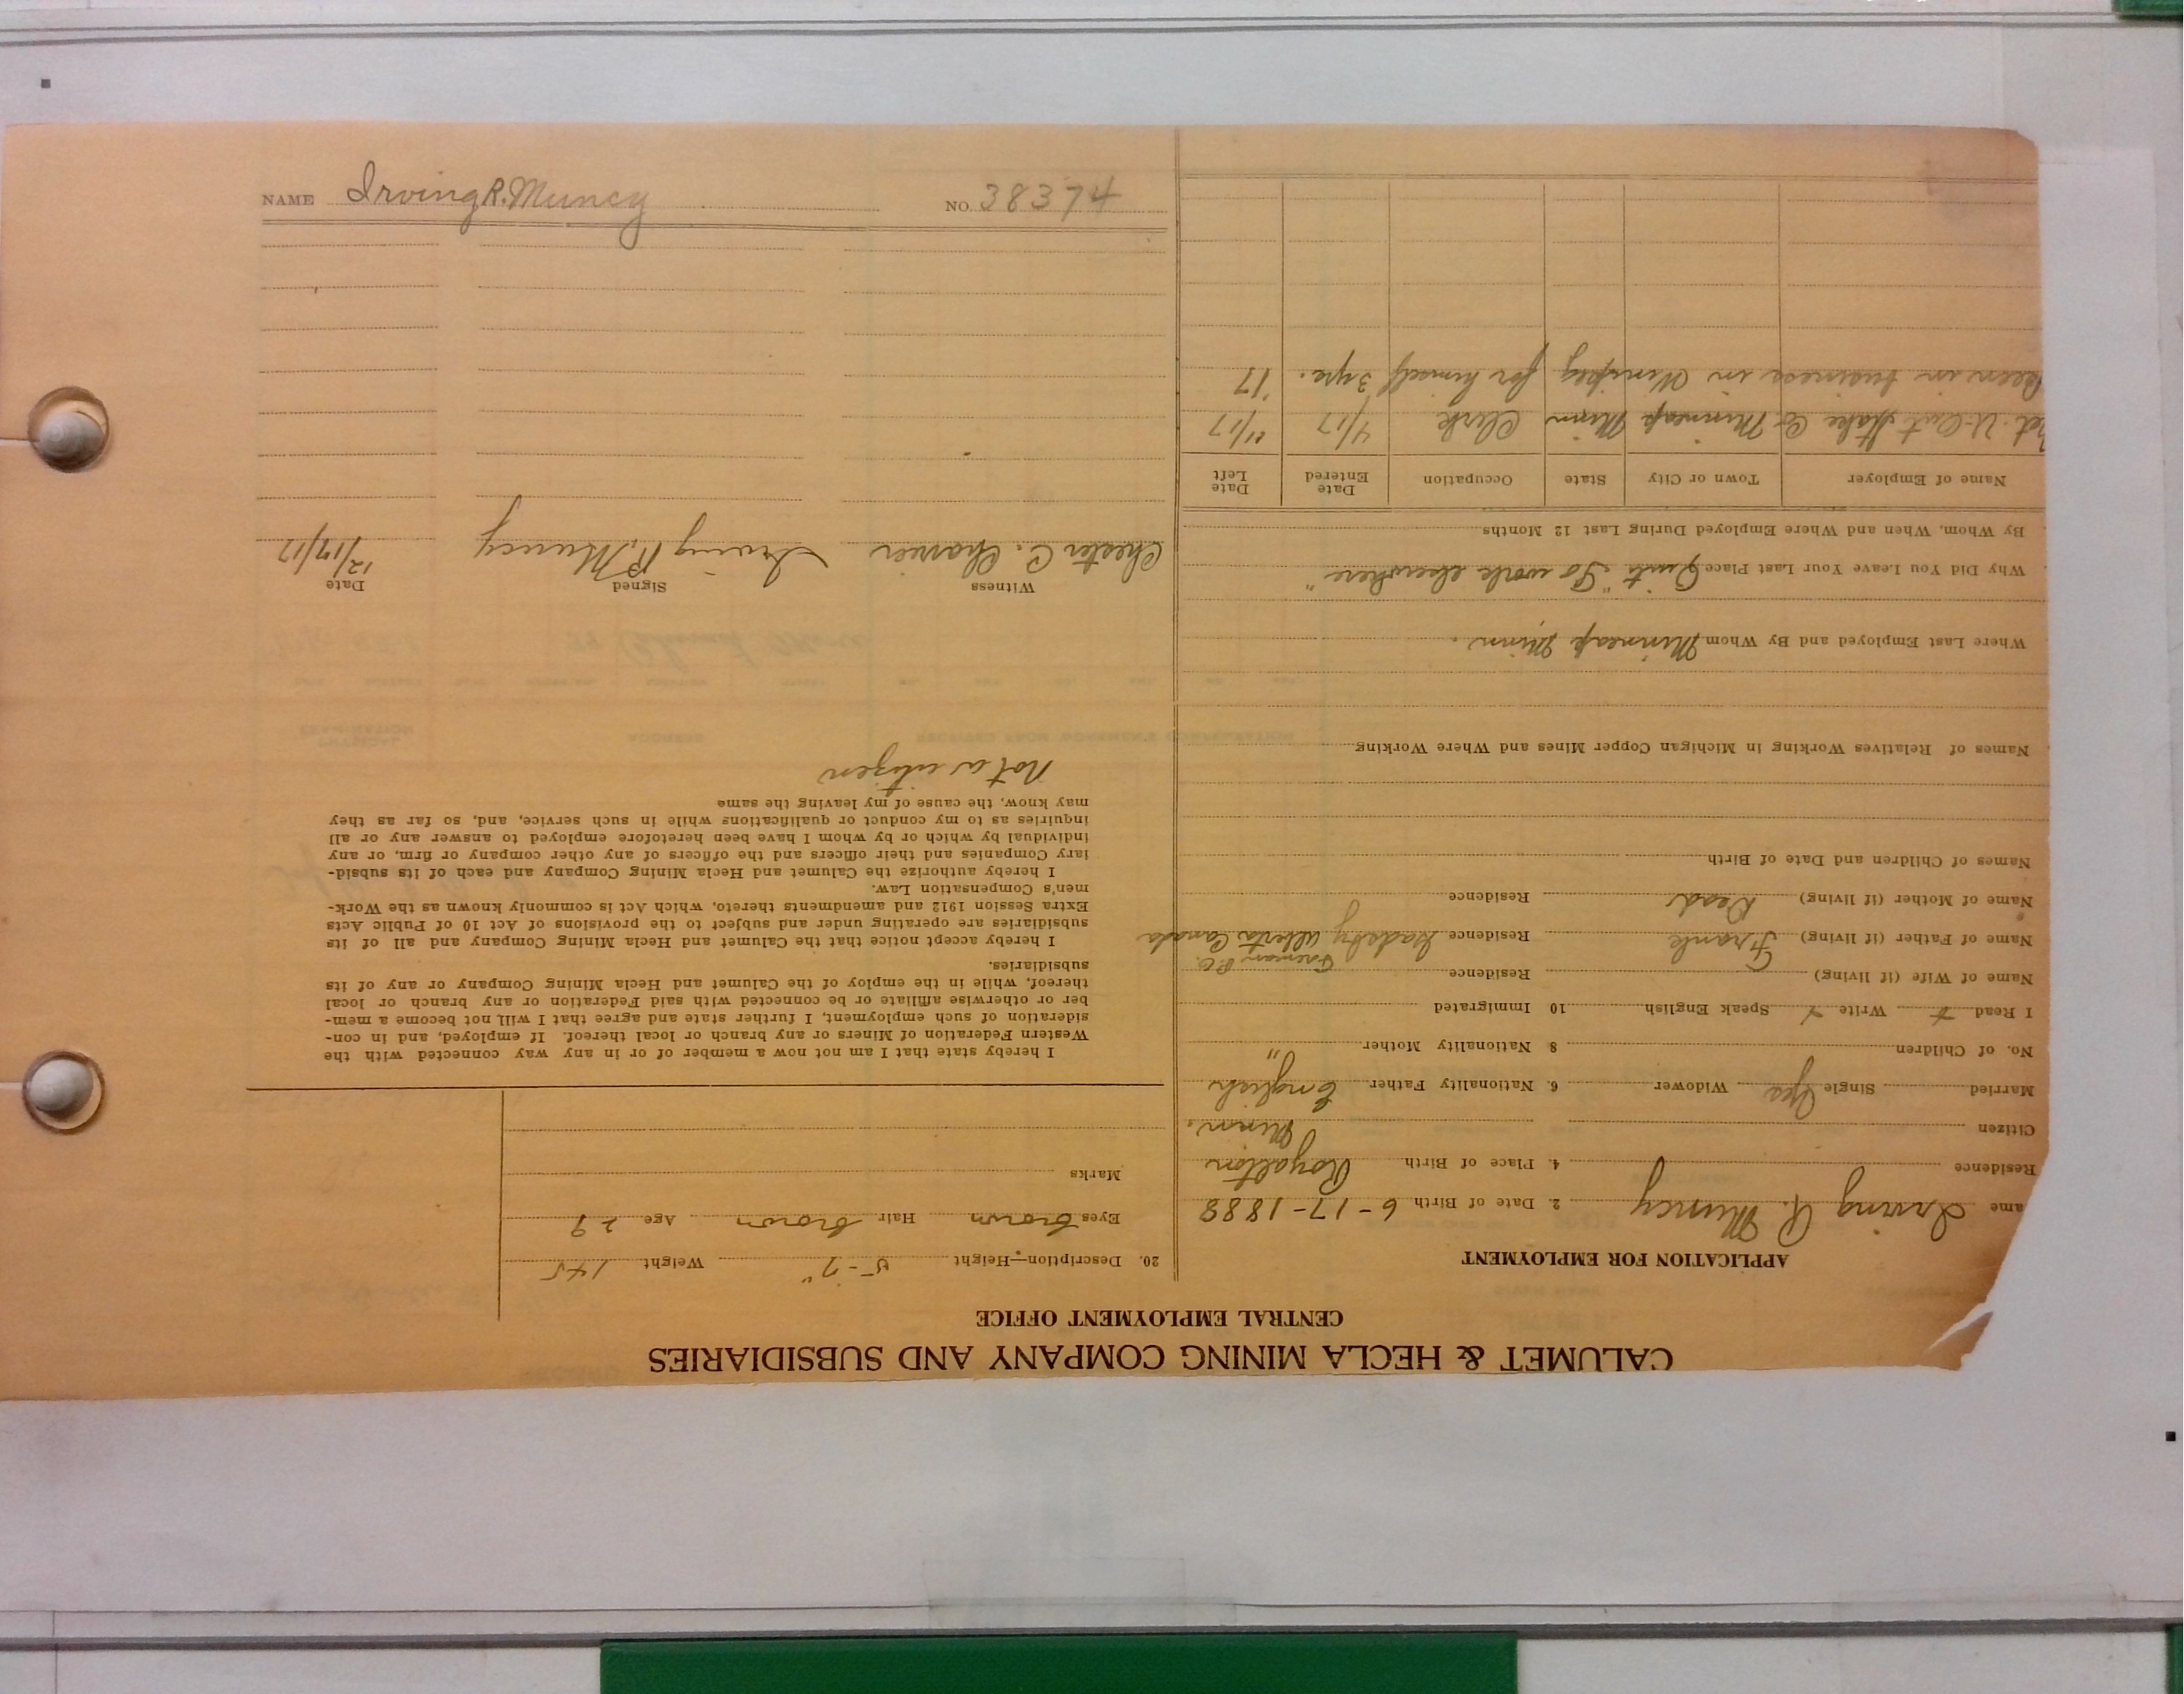 CALUMET & HECLA MINING COMPANY AND SUBSIDIARIES
CENTRAL EMPLOYMENT OFFICE
APPLICATION FOR EMPLOYMENT
ame Irving R. Muncy 2. Date of Birth 6-17-1888
Residence 4. Place of Birth Royalton
Citizen Minn.
Married Single Yes Widower 6. Nationality Father English
No. of Children 8 Nationality Mother "
I Read Write Speak English 10 Immigrated
Name of Wife (if living) Residence Foreman P.O.
Name of Father (if living) Frank Residence Alberta Canada
Name of Mother (if living) Dead Residence
Names of Children and Date of Birth
Names of Relatives Working in Michigan Copper Mines and Where Working
Where Last Employed and By Whom Mineap Minn.
Why Did You Leave Your Last Place Quit "To work elsewhere"
By Whom, When and Where Employed During Last 12 Months
Name of Employer Town or City State Occupation Date Entered Date Left
Co Mineap Minn Clerk 4/17 11/17
Been in business in Winipeg for himself 3 yrs. '17
20. Description—Height 5-7" Weight 145
Eyes brown Hair brown Age 29
Marks
I hereby state that I am not now a member of or in any way connected with the
Western Federation of Miners or any branch or local thereof. If employed, and in con-
sideration of such employment, I further state and agree that I will not become a mem-
ber or otherwise affiliate or be connected with said Federation or any branch or local
thereof, while in the employ of the Calumet and Hecla Mining Company or any of its
subsidiaries.
I hereby accept notice that the Calumet and Hecla Mining Company and all of its
subsidiaries are operating under and subject to the provisions of Act 10 of Public Acts
Extra Session 1912 and amendments thereto, which Act is commonly known as the Work-
men's Compensation Law.
I hereby authorize the Calumet and Hecla Mining Company and each of its subsid-
iary Companies and their officers and the officers of any other company or firm, or any
individual by which or by whom I have been heretofore employed to answer any or all
inquiries as to my conduct or qualifications while in such service, and, so far as they
may know, the cause of my leaving the same
Not a citizen
Witness Signed Date
Chester C. Irving R. Muncy 12/17/17
NAME Irving R. Muncy NO. 38374